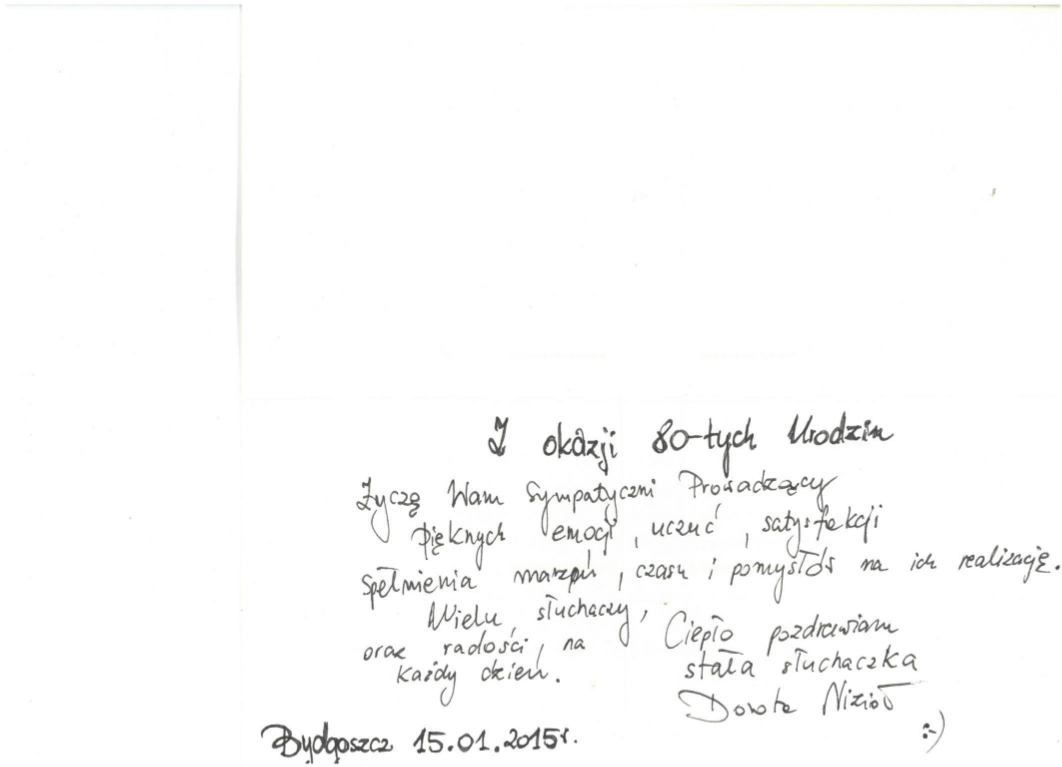 Z okazji 80-tych Urodzin
Życzę Wam Sympatyczni Prowadzący
pięknych emocji, uczuć, satysfakcji
spełnienia marzeń, czasu i pomysłów na ich realizację.
Wielu słuchaczy,
oraz radości, na
każdy dzień.
Ciepło pozdrawiam
stała słuchaczka
Dorota Nizioł
:-)
Bydgoszcz 15.01.2015r.